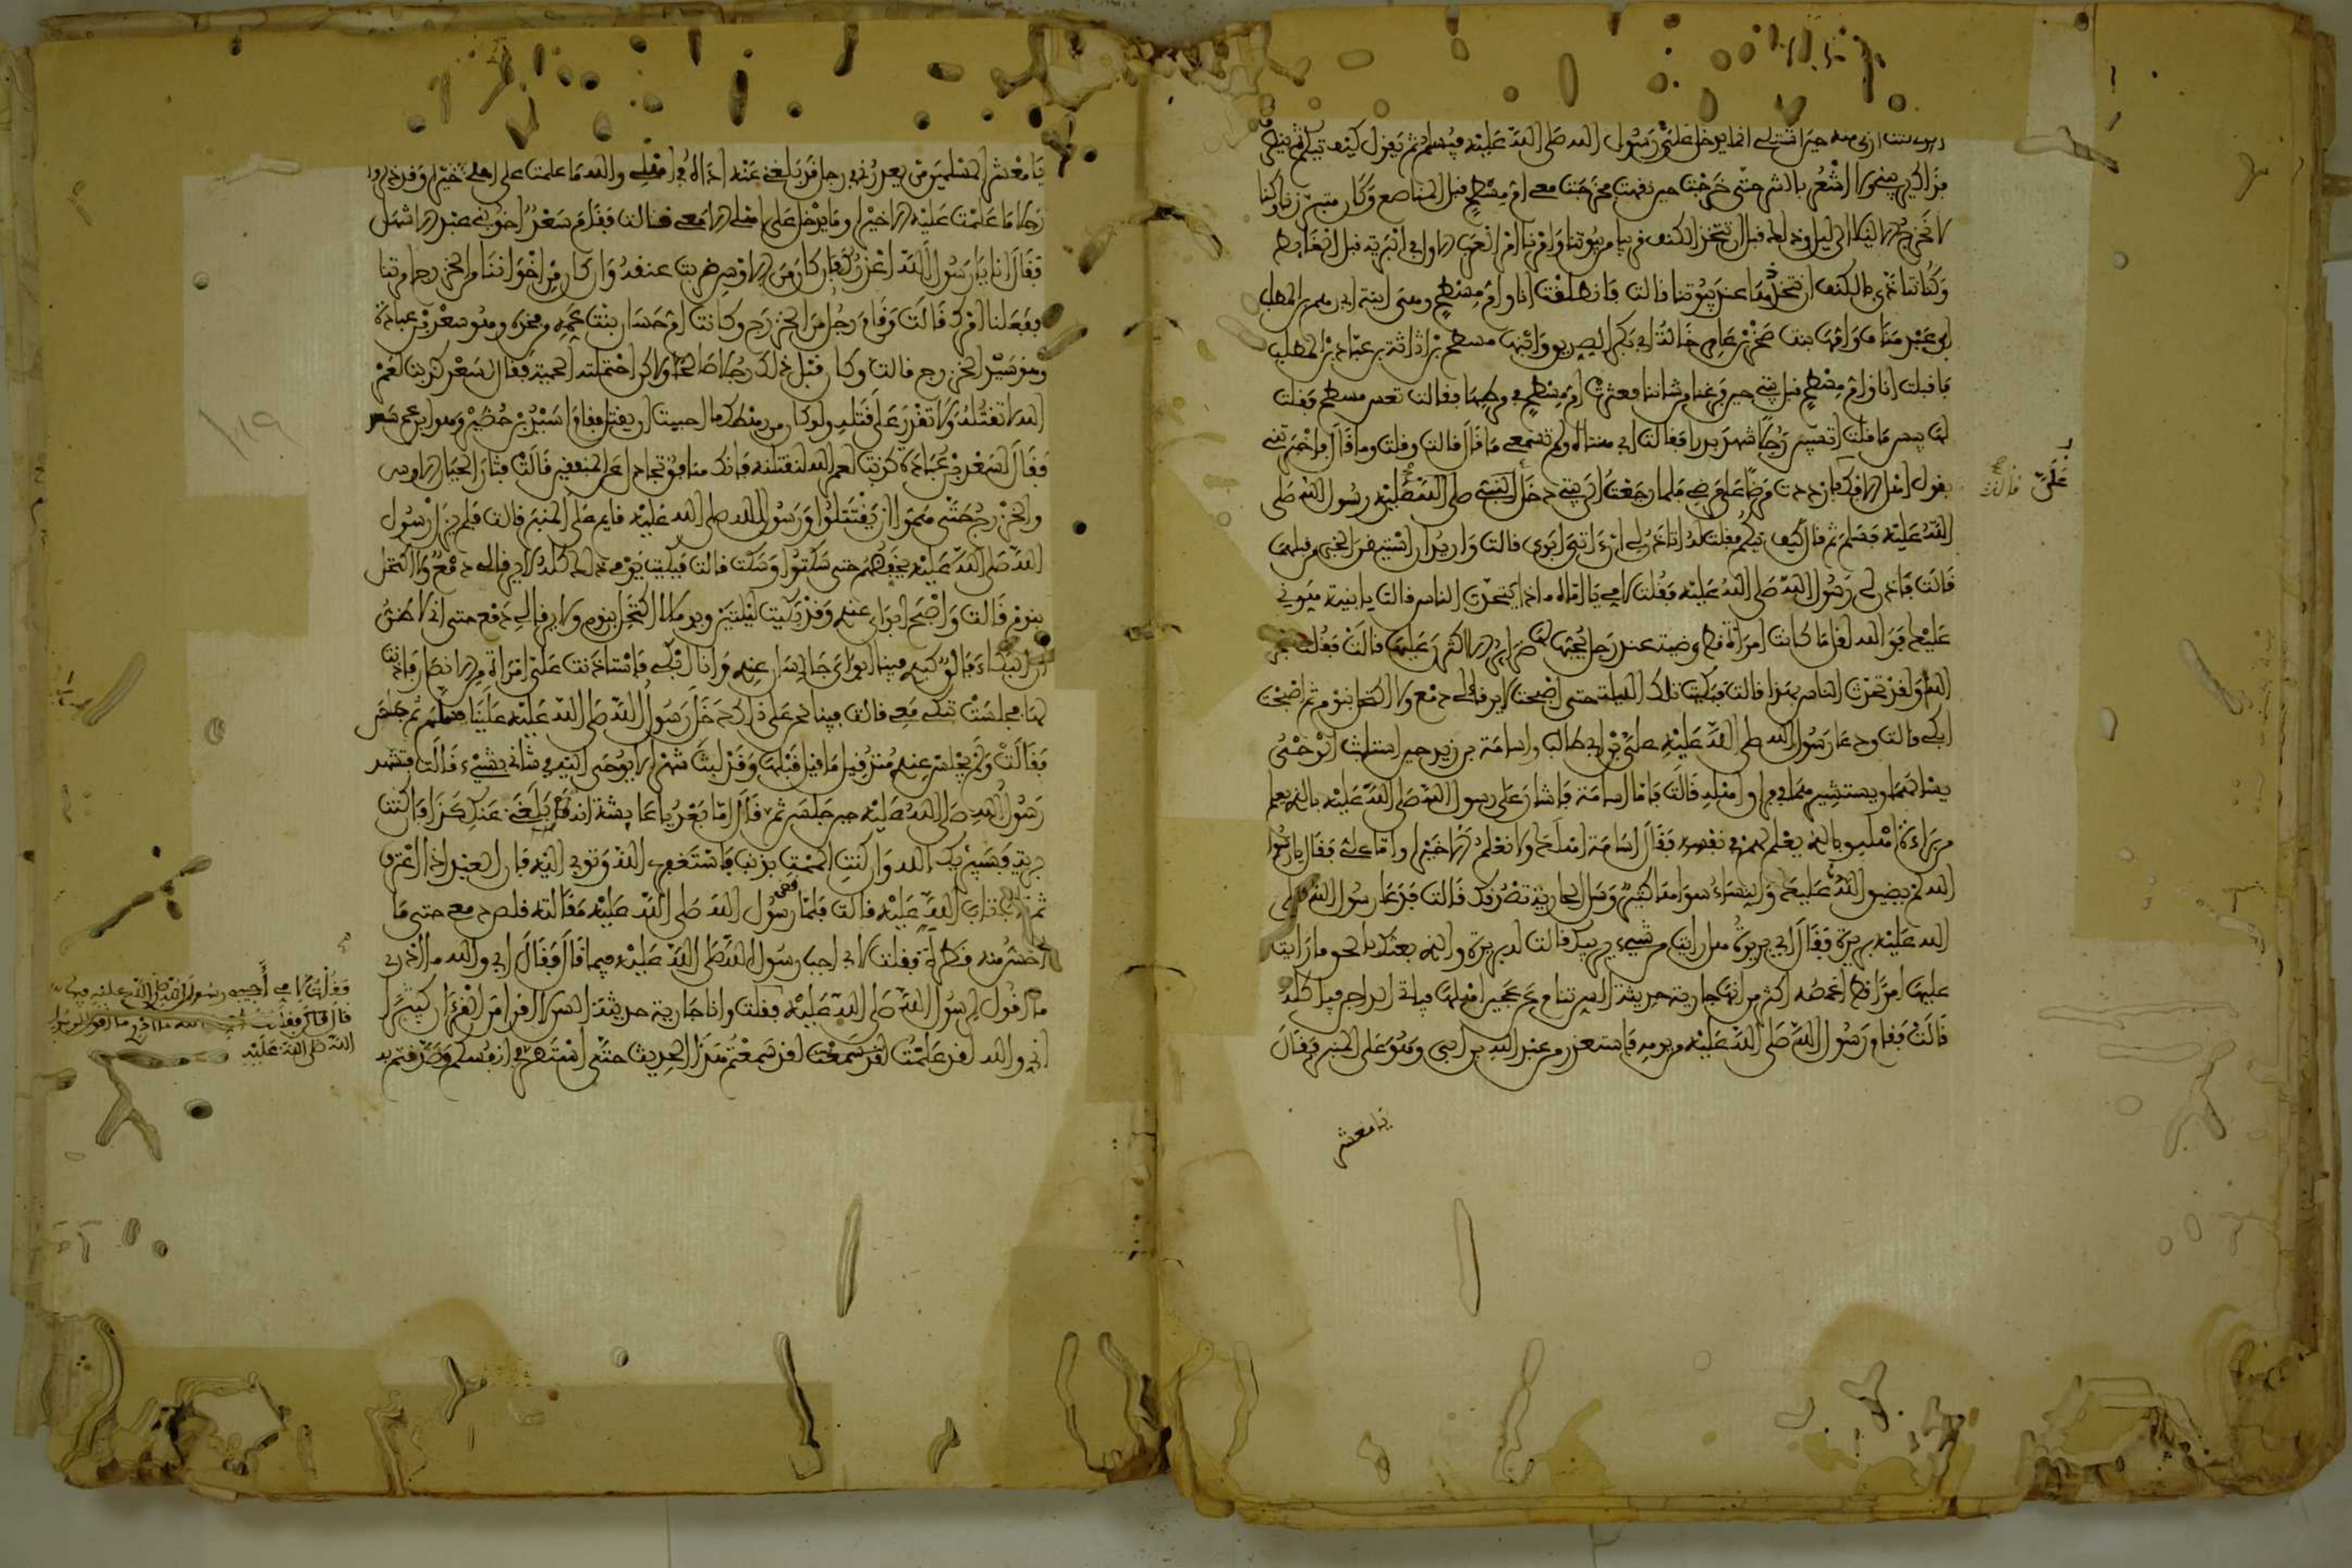 أرى منه حين أشتكي إنما يدخل علي رسول الله صلى الله عليه فيسلم ثم يقول كيف تيكم ثم ينصرف
فذاك يريبني ولا أشعر بالشر حتى خرجت حين نقهت فخرجت مع أم مسطح قبل المناصع وكان متبرزنا وكنا
لا نخرج إلا ليلا إلى ليل وذلك قبل أن نتخذ الكنف قريبا من بيوتنا وأمرنا أمر العرب الأول في البرية قبل الغائط
وكنا نتأذى بالكنف أن نتخذها عند بيوتنا قالت فانطلقت أنا وأم مسطح وهي ابنة أبي رهم بن المطلب
بن عبد مناف وأمها بنت صخر بن عامر خالة أبي بكر الصديق وابنها مسطح بن أثاثة بن عباد بن المطلب
فأقبلت أنا وأم مسطح قبل بيتي حين فرغنا من شأننا فعثرت أم مسطح في مرطها فقالت تعس مسطح فقلت
لها بيس ما قلت أتسبين رجلا شهد بدرا فقالت أي هنتاه ولم تسمعي ما قال قالت وقلت وما قال فأخبرتني
بقول أهل الإفك فازددت مرضا على مرضي فلما رجعت إلى بيتي دخل علي رسول الله صلى
الله عليه فسلم ثم قال كيف تيكم فقلت له أتأذن لي أن آتي أبوي قالت وأريد أن أستيقن الخبر من قبلهما
قالت فأذن لي رسول الله صلى الله عليه فقلت لأمي يا أمتاه ماذا يتحدث الناس قالت يا بنية هوني
عليك فوالله لقل ما كانت امرأة قط وضية عند رجل يحبها لها ضرائر إلا أكثرن عليها قالت فقلت سبحان
الله ولقد تحدث الناس بهذا قالت فبكيت تلك الليلة حتى أصبحت لا يرقأ لي دمع ولا أكتحل بنوم ثم أصبحت
أبكي قالت ودعا رسول الله صلى الله عليه علي بن أبي طالب وأسامة بن زيد حين استلبث الوحي
يسألهما ويستشيرهما في فراق أهله قالت فأما أسامة فأشار على رسول الله صلى الله عليه بالذي يعلم
من براءة أهله وبالذي يعلم لهم في نفسه فقال أسامة أهلك ولا نعلم إلا خيرا وأما علي فقال يا رسول
الله لم يضيق الله عليك والنساء سواها كثير وسل الجارية تصدقك قالت فدعا رسول الله صلى
الله عليه بريرة فقال أي بريرة هل رأيت من شيء يريبك قالت له بريرة والذي بعثك بالحق ما رأيت
عليها أمرا قط أغمصه أكثر من أنها جارية حديثة السن تنام عن عجين أهلها فيأتي الداجن فيأكله
قالت فقام رسول الله صلى الله عليه من يومه فاستعذر من عبد الله بن أبي وهو على المنبر فقال
يا معشر
علي
قالت
يا معشر المسلمين من يعذرني من رجل قد بلغني عنه أذاه في أهلي والله ما علمت على أهلي إلا خيرا وقد ذكروا
رجلا ما علمت عليه إلا خيرا وما يدخل على أهلي إلا معي قالت فقام سعد أخو بني عبد الأشهل
فقال أنا يا رسول الله أعذرك فإن كان من الأوس ضربت عنقه وإن كان من إخواننا من الخزرج أمرتنا
ففعلنا أمرك قالت وقام رجل من الخزرج وكانت أم حسان بنت عمه من فخذه وهو سعد بن عبادة
وهو سيد الخزرج قالت وكان قبل ذلك رجلا صالحا ولكن احتملته الحمية فقال لسعد كذبت لعمر
الله لا تقتله ولا تقدر على قتله ولو كان من رهطك ما أحببت أن يقتل فقام أسيد بن حضير وهو ابن عم سعد
فقال لسعد بن عبادة كذبت لعمر الله لنقتلنه فإنك منافق تجادل عن المنافقين قالت فثار الحيان الأوس
والخزرج حتى هموا أن يقتتلوا ورسول الله صلى الله عليه قائم على المنبر قالت فلم يزل رسول
الله صلى الله عليه يخفضهم حتى سكتوا وسكت قالت فبكيت يومي ذلك كله لا يرقأ لي دمع ولا أكتحل
بنوم قالت وأصبح أبواي عندي وقد بكيت ليلتين ويوما لا أكتحل بنوم ولا يرقأ لي دمع حتى إني لأظن
أن البكاء فالق كبدي فبينا أبواي جالسان عندي وأنا أبكي فاستأذنت علي امرأة من الأنصار فأذنت
لها فجلست تبكي معي قالت فبينا نحن على ذلك دخل رسول الله صلى الله عليه علينا فسلم ثم جلس
فقالت ولم يجلس عندي منذ قيل ما قيل قبلها وقد لبث شهرا لا يوحى إليه في شأني بشيء قالت فتشهد
رسول الله صلى الله عليه حين جلس ثم قال أما بعد يا عائشة إنه قد بلغني عنك كذا فإن كنت
برية فسيبريك الله وإن كنت ألممت بذنب فاستغفري الله وتوبي إليه فإن العبد إذا اعترف
ثم تاب تاب الله عليه قالت فلما قضى رسول الله صلى الله عليه مقالته قلص دمعي حتى ما
أحس منه قطرة فقلت لأبي أجب رسول الله صلى الله عليه فيما قال فقال أبي والله ما أدري
ما أقول لرسول الله صلى الله عليه فقلت وأنا جارية حديثة السن لا أقرأ من القرآن كثيرا
إني والله لقد علمت لقد سمعتم هذا الحديث حتى استقر في أنفسكم وصدقتم به
فقلت لأمي أجيبي رسول الله صلى الله عليه فيما
قال قالت أمي والله ما أدري ما أقول لرسول
الله صلى الله عليه
119